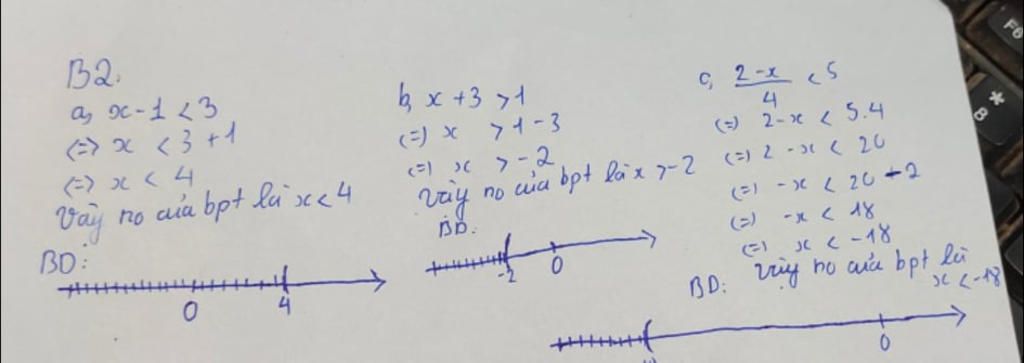 B2.
a, x-1 < 3
<=> x < 3 + 1
<=> x < 4
Vậy no của bpt là x < 4
BD:
0 4
b, x + 3 > 1
<=> x > 1 - 3
<=> x > -2
Vậy no của bpt là x > -2
BD:
-2 0
c, 2-x / 4 < 5
<=> 2-x < 5.4
<=> 2 -x < 20
<=> -x < 20 - 2
<=> -x < 18
<=> x < -18
Vậy no của bpt là
x < -18
BD:
0
F6
*
8